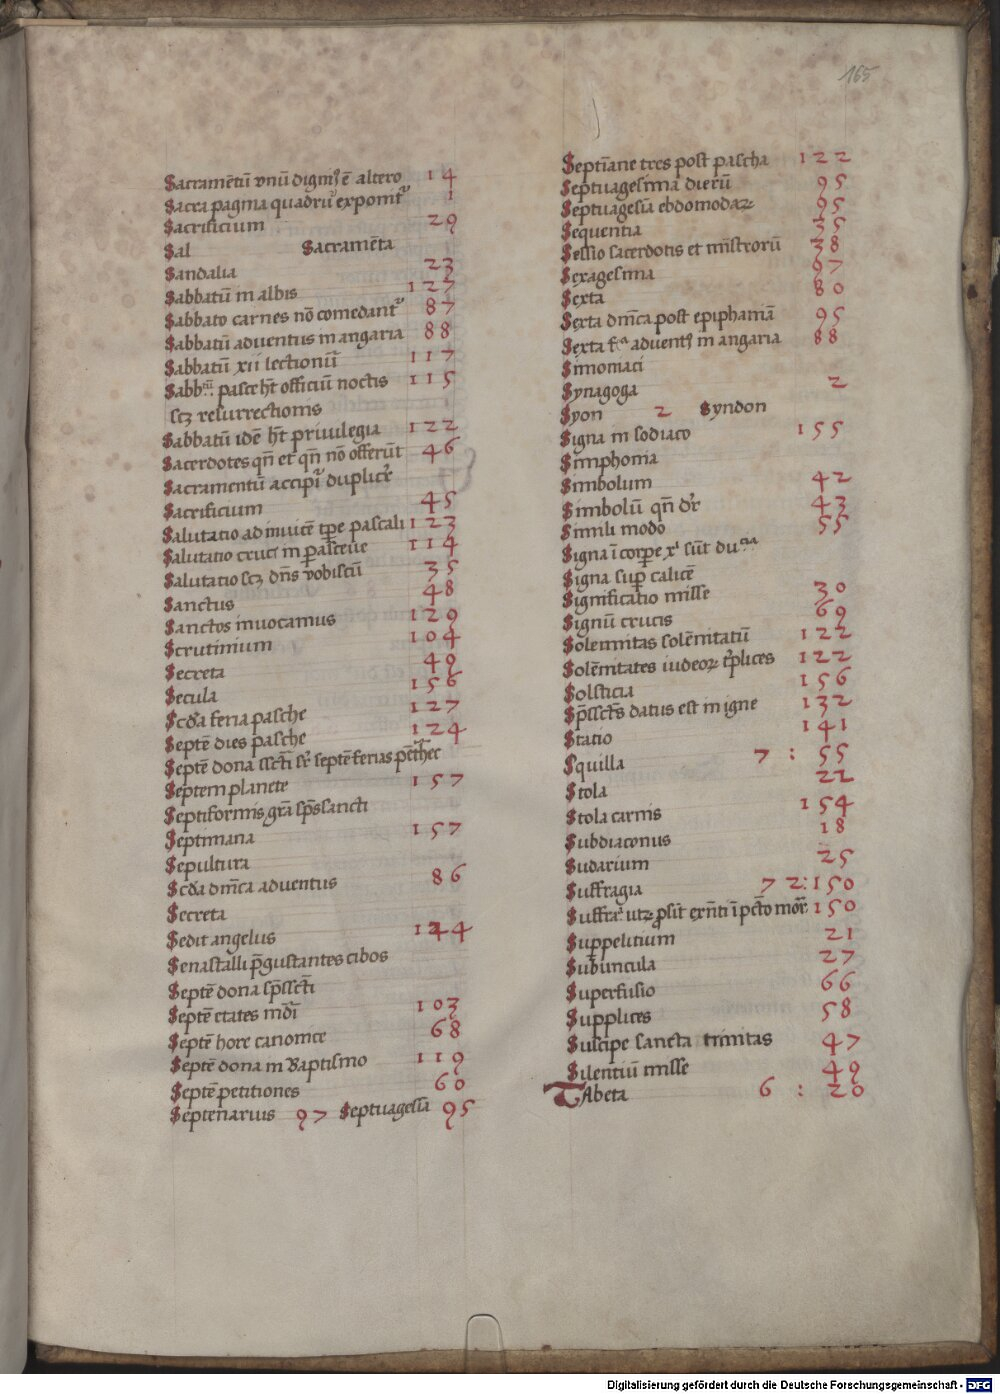 165
Sacramētū vnū digniꝰ ē altero 14
Sacra pagina quadruꝰ exponitᷣ 1
Sacrificium 29
Sal Sacramēta
Sandalia 23
Sabbatū in albis 127
Sabbato carnes nō comedantᷣ 87
Sabbatū aduentus in angaria 88
Sabbatū xii lectionū 117
Sabbᵗū pasce hт̄ officiū noctis 115
scꝫ resurrectionis
Sabbatū idē hт̄ priuilegia 122
Sacerdotes qn̄ et qn̄ nō offerūt 46
Sacramentū accipi duplicr̄
Sacrificium 45
Salutatio ad inuicē tp̄e pascali 123
Salutatio crucis in ꝑasceue 114
Salutatio scꝫ dn̄s vobiscū 35
Sanctus 48
Sanctos inuocamus 129
Scrutinium 104
Secreta 49
Secula 156
Scd̄a feria pasche 127
Septē dies pasche 124
Septē dona ssct̄i sr̄ septē ferias
Septem planete 157
Septiformis grā sp̄ssancti
Septimana 157
Sepultura
Scd̄a dn̄ica aduentus 86
Secreta
Sedit angelus 144
Senastalli p̄gustantes cibos
Septē dona sp̄ssct̄i
Septē etates mūdi 103
Septē hore canonice 68
Septē dona in Baptismo 119
Septē petitiones 60
Septenarius 97 Septuagesīa 95
Septīane tres post pascha 122
Septuagesima dierū 95
Septuagesīa ebdomodaꝝ 95
Sequentia 35
Sessio sacerdotis et mīstrorū 38
Sexagesima 97
Sexta 80
Sexta dn̄ica post epiphaniā 95
Sexta fᵃ aduentꝰ in angaria 88
Simoniaci
Synagoga 2
Syon 2 Syndon
Signa in sodiaco 155
Simphonia
Simbolum 42
Simbolū qn̄ dr̄ 43
Simili modo 55
Signa ī corꝑe xᵖi sūt
Signa suꝑ calicē
Significatio misse 30
Signū crucis 69
Solennitas solēnitatū 122
Solēnitates iudeoꝝ tⁱplices 122
Solsticia 156
Sp̄ssct̄s datus est in igne 132
Statio 141
Squilla 7 : 55
Stola 22
Stola carnis 154
Subdiaconus 18
Sudarium 25
Suffragia 72:150
Suffraᵃ utꝝ ꝓsūt exn̄ti ī pctō mor̄ 150
Suppelitium 21
Subuncula 27
Superfusio 66
Supplices 58
Suscipe sancta trinitas 47
Silentiū misse 49
TAbeta 6 : 20
Digitalisierung gefördert durch die Deutsche Forschungsgemeinschaft - DFG